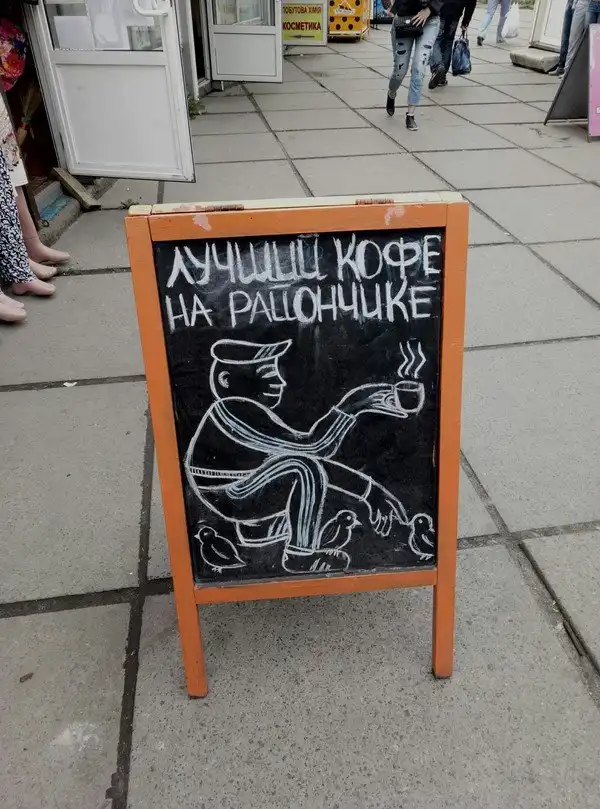 ПОБУТОВА ХІМІЯ
КОСМЕТИКА
ЛУЧШИЙ КОФЕ
НА РАЙОНЧИКЕ